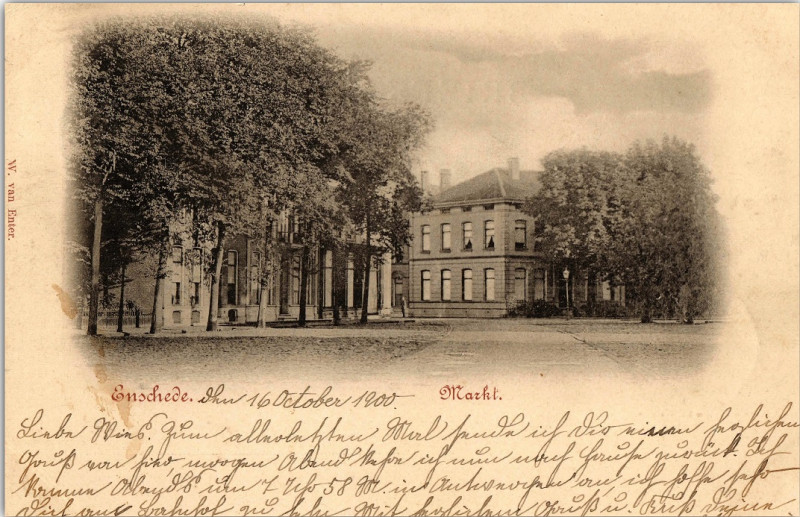 W. van Enter.
Enschede. den 16 October 1900
Markt.
Liebe Wies. Zum allerletzten Mal sende ich Dir einen herzlichen
Gruß von hier, morgen Abend kehre ich nun nach Hause zurück. Ich
komme Abends um 7 Uhr 58 M. in Antwerpen an ich hoffe sehr
Dich am Bahnhof zu sehn Mit herzlichem Gruß u. Kuß Deine